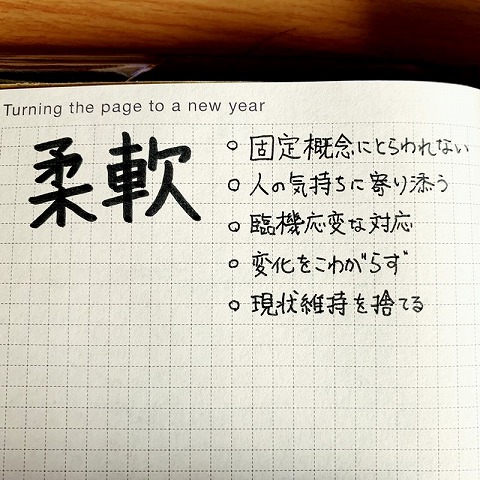 Turning the page to a new year
柔軟
○ 固定概念にとらわれない
○ 人の気持ちに寄り添う
○ 臨機応変な対応
○ 変化をこわがらず
○ 現状維持を捨てる